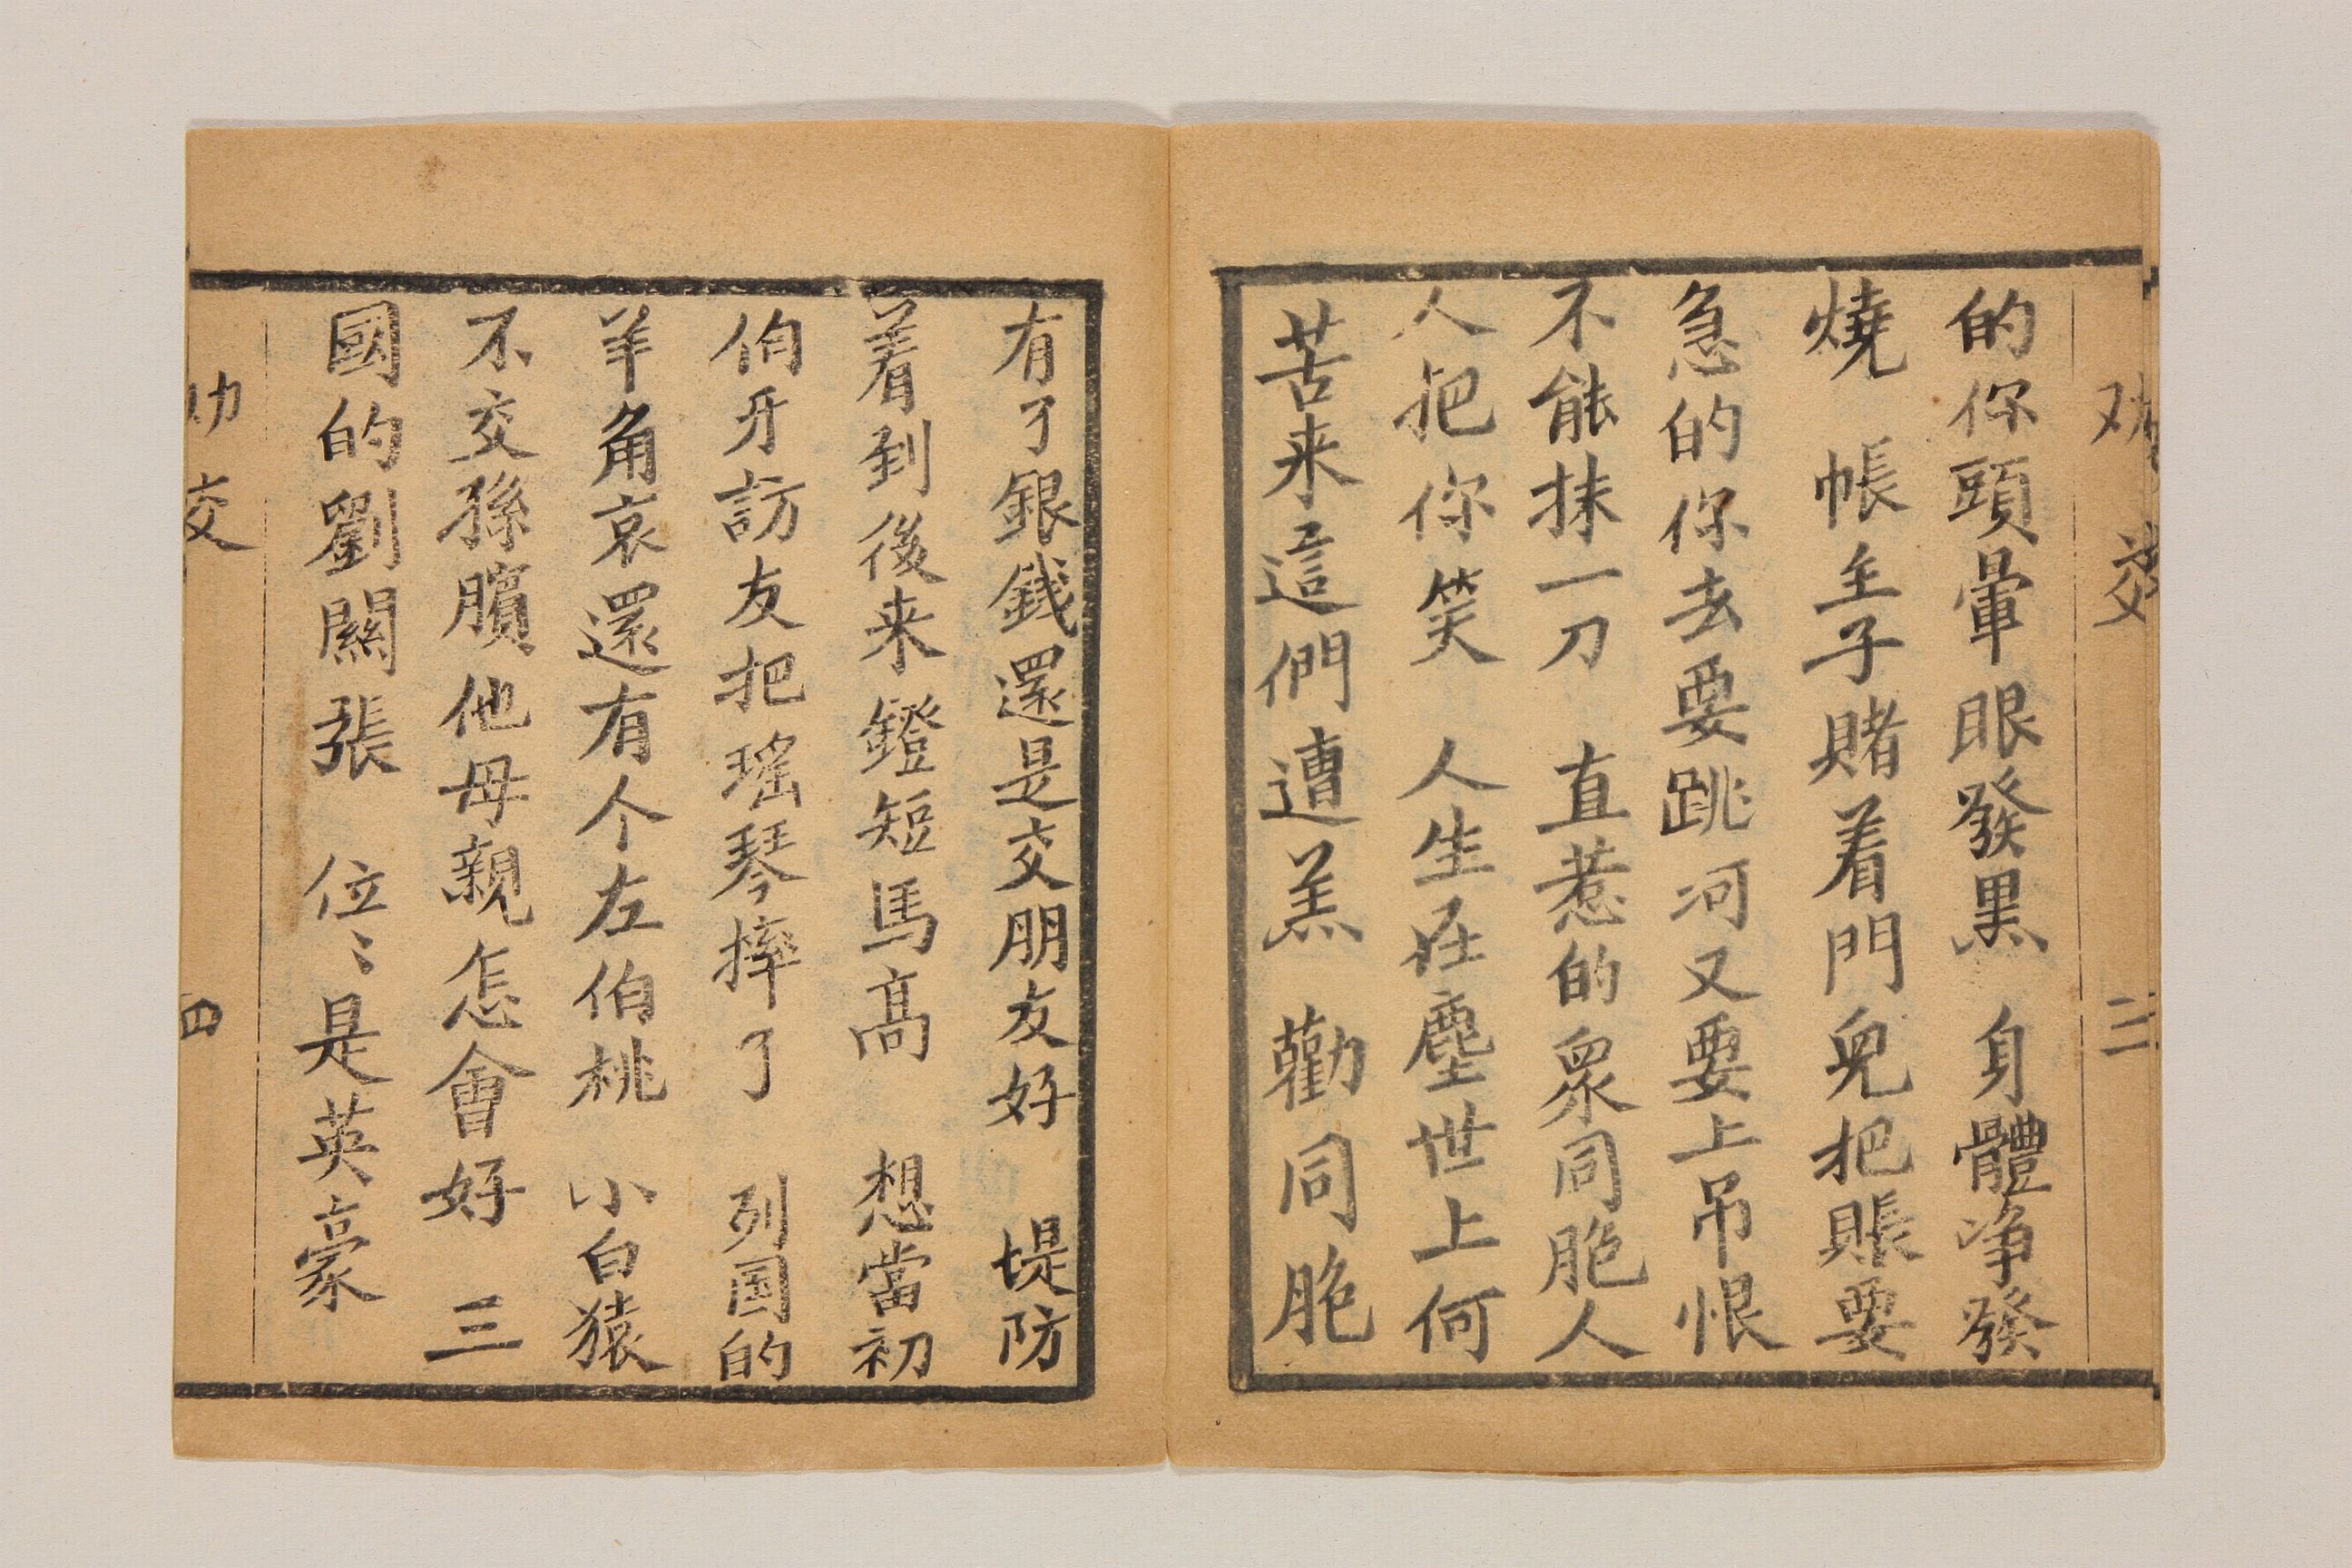 劝交 三
的你頭暈眼發黑 身體净發
燒 帳主子賭着門兒把賬要
急的你去要跳河又要上吊恨
不能抹一刀 直惹的衆同胞人
人把你笑 人生在塵世上何
苦来這們遭羔 勸同胞
有了銀錢還是交朋友好 堤防
着到後来鐙短馬高 想當初
伯牙訪友把瑤琴摔了 列国的
羊角哀還有个左伯桃 小白猿
不交孫臏他母親怎會好 三
國的劉關張 位〻是英豪
交 四